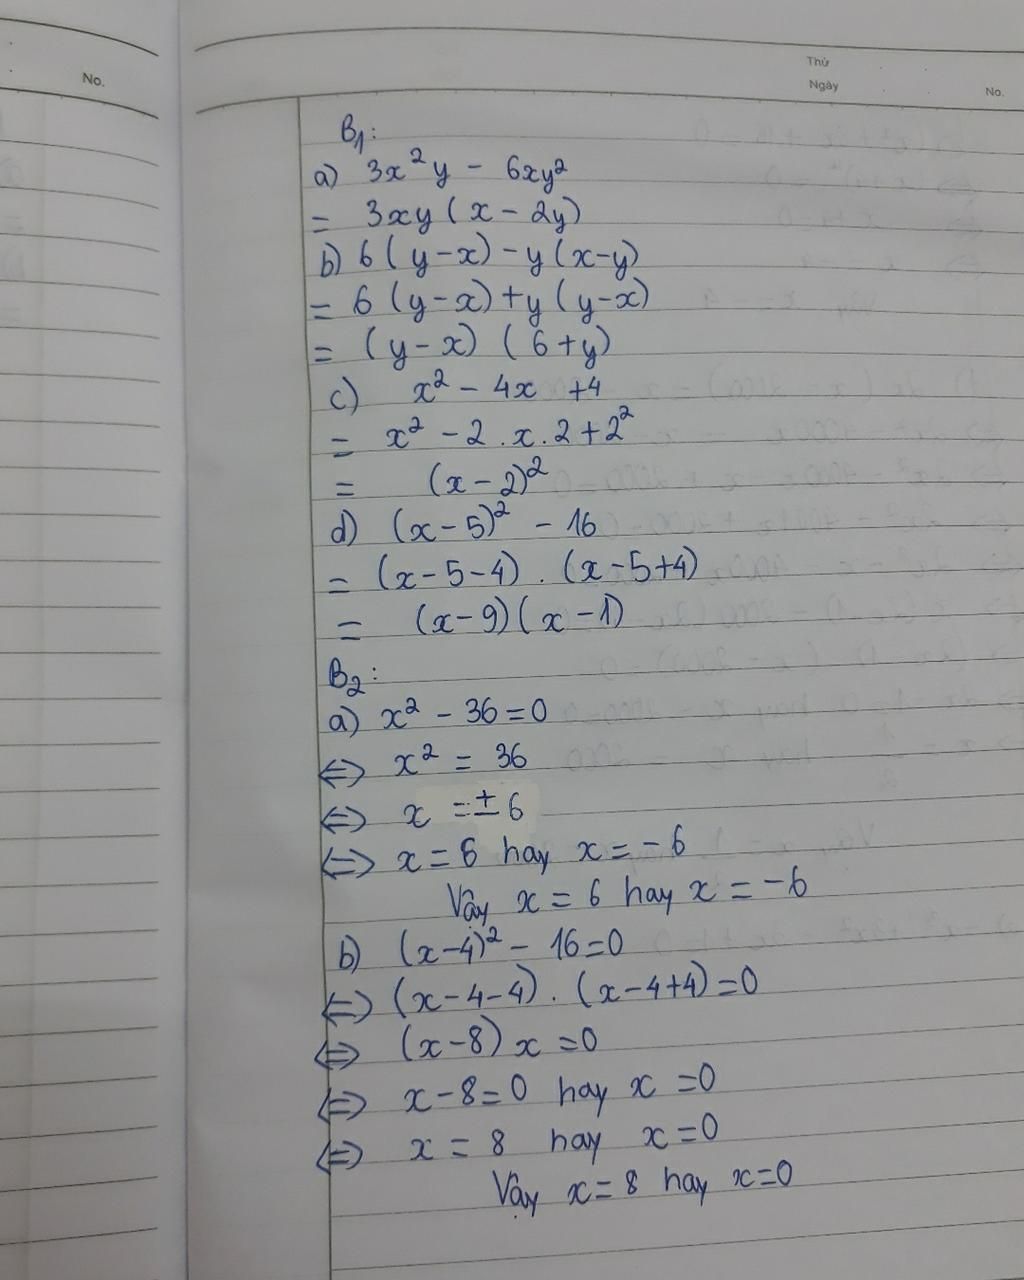 No.
Thứ
Ngày
No.
B1:
a) 3x²y - 6xy²
= 3xy (x - 2y)
b) 6 (y-x) - y (x-y)
= 6 (y-x) + y (y-x)
= (y-x) (6+y)
c) x² - 4x + 4
= x² - 2 . x . 2 + 2²
= (x-2)²
d) (x-5)² - 16
= (x-5-4) . (x-5+4)
= (x-9)(x-1)
B2:
a) x² - 36 = 0
⇔ x² = 36
⇔ x = ± 6
⇔ x = 6 hay x = -6
Vậy x = 6 hay x = -6
b) (x-4)² - 16 = 0
⇔ (x-4-4) . (x-4+4) = 0
⇔ (x-8) x = 0
⇔ x-8 = 0 hay x = 0
⇔ x = 8 hay x = 0
Vậy x = 8 hay x = 0